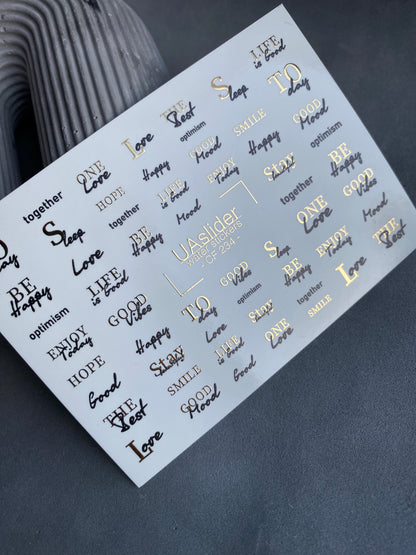 LIFE
is Good
S
leep
TO
day
THE
Best
L
ove
ONE
Love
together
optimism
SMILE
GOOD
Mood
optimism
GOOD
Mood
Happy
BE
Happy
HOPE
Happy
LIFE
is Good
ENJOY
Today
Stay
GOOD
Vibes
together
S
leep
together
BE
Happy
Mood
together
ONE
Love
THE
Best
day
Love
UAslider
water stickers
- CF 234 -
Sleep
ENJOY
Today
L
ove
BE
Happy
LIFE
is Good
GOOD
Vibes
BE
Happy
together
optimism
GOOD
Vibes
TO
day
optimism
Stay
ONE
Love
SMILE
ENJOY
Today
Happy
Love
LIFE
is Good
HOPE
Stay
Good
SMILE
GOOD
Mood
Good
THE
Best
L
ove